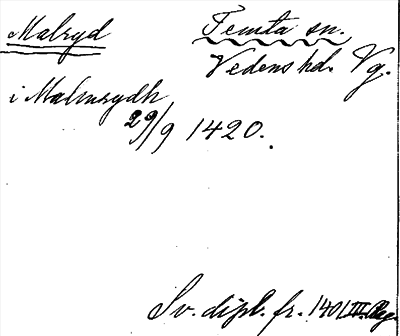 Malryd Temta sn.
Vedens hd. Vg.
i Malmrydh
29/9 1420.
Sv. dipl. fr. 1401 III. Reg.